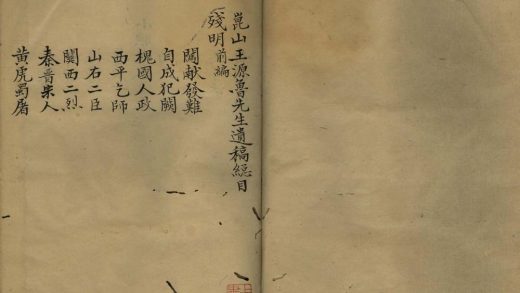 崑山王源魯先生遺稿總目
殘明前編
闖献發難
自成犯闕
槐國人政
西平乞師
山右二臣
關西二烈
秦晋宋人
黄虎蜀屠